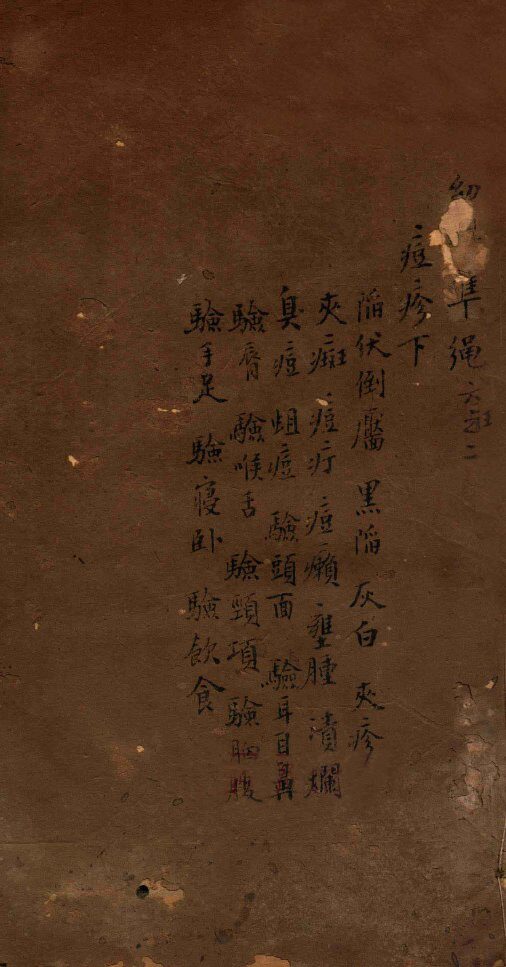 幼 準繩
痘疹下
陥伏倒靨 黒陥 灰白 夾疹
夾斑 痘疔 痘癩 壅腫 潰爛
臭痘 蛆痘 驗頭面 驗耳目鼻
驗唇 驗喉舌 驗頸項 驗胸腹
驗手足 驗寝卧 驗飲食